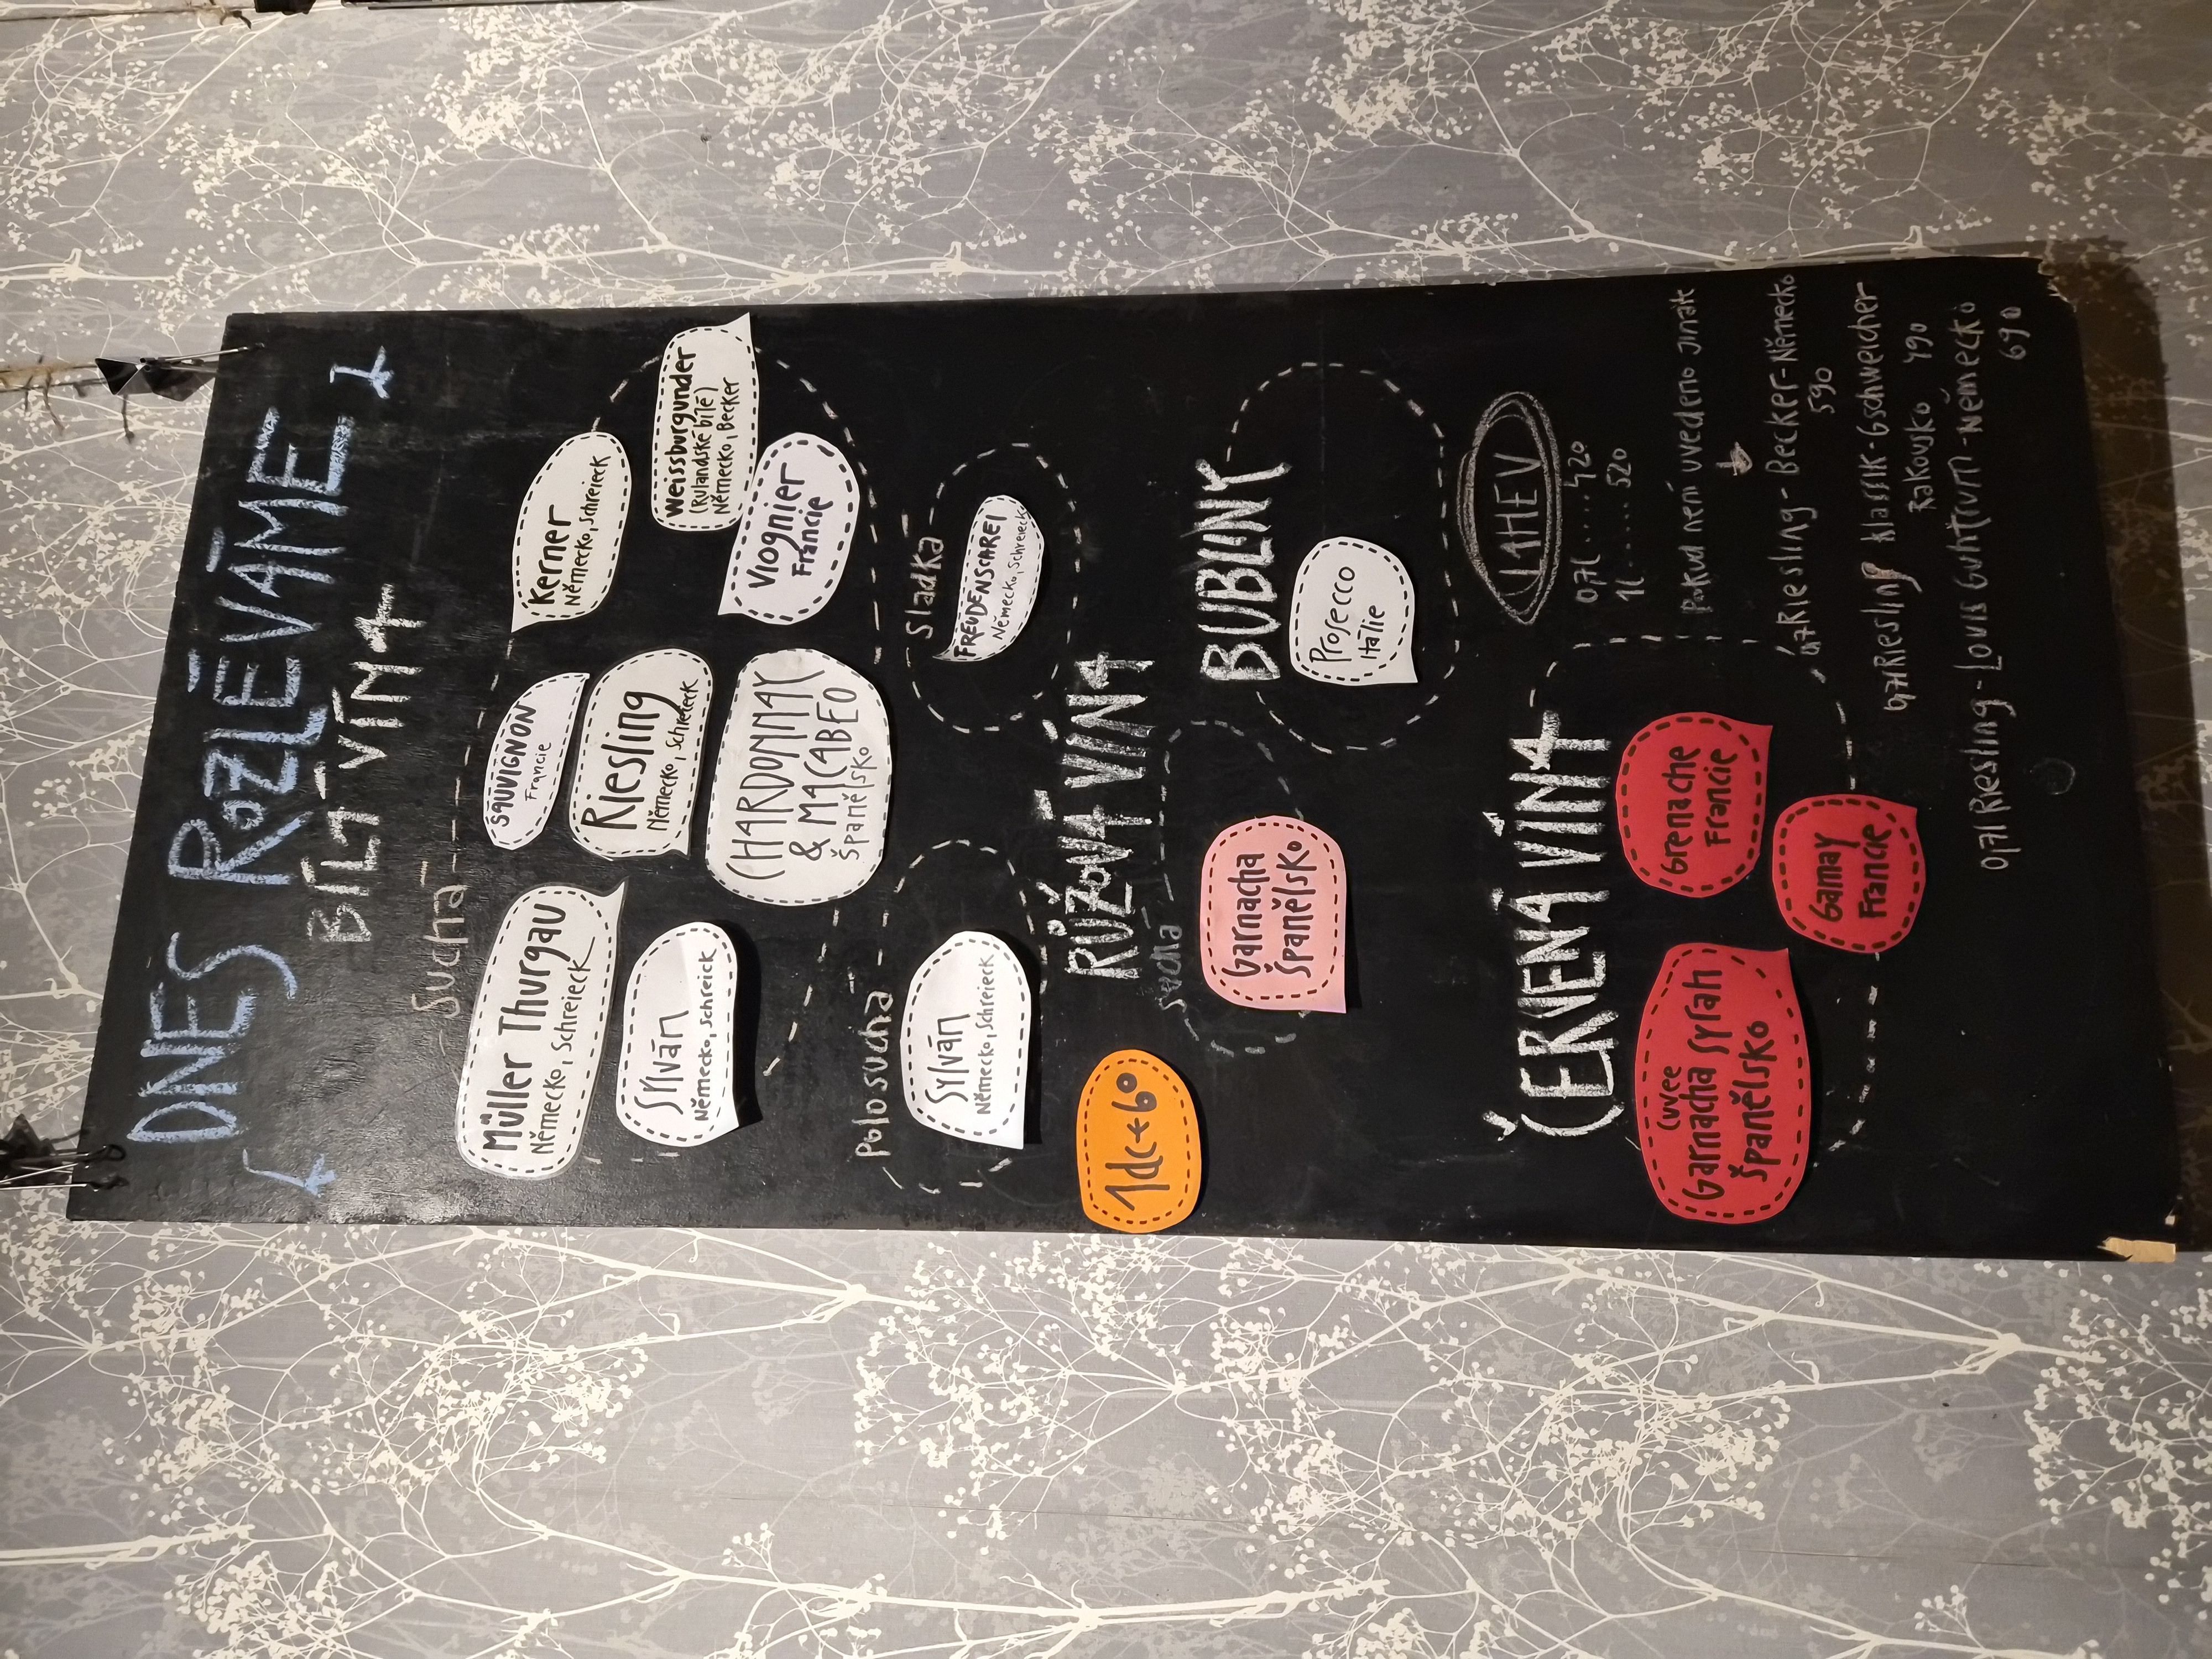 DNES ROZLÉVÁME
BÍLÁ VÍNA
Suchá
Müller Thurgau
Německo, Schreieck
Sauvignon
Francie
Kerner
Německo, Schreieck
Sylván
Německo, Schreick
Riesling
Německo, Schreieck
Weissburgunder
(Rulandské bílé)
Německo, Becker
CHARDONNAY
& MACABEO
Španělsko
Viognier
Francie
Polosuchá
Sylván
Německo, Schreieck
Sladká
FREUDENSCAREI
Německo, Schreieck
RŮŽOVÁ VÍNA
Suchá
1dc + 60
Garnacha
Španělsko
BUBLINY
Prosecco
Itálie
ČERVENÁ VÍNA
Cuvee
Garnacha Syrah
Španělsko
Grenache
Francie
Gamay
Francie
LAHEV
0,7l.....420
1l.....520
Pokud není uvedeno jinak
0,7 Riesling - Becker - Německo
590
0,7l Riesling klassik - Gschweicher
Rakousko 490
0,7l Riesling - Louis Guhtrum - Německo
690